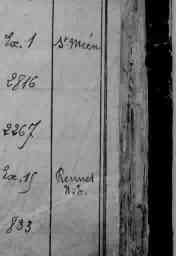 Ex. 1 St Méen
2816
2267
Ex. 15 Rennes
833